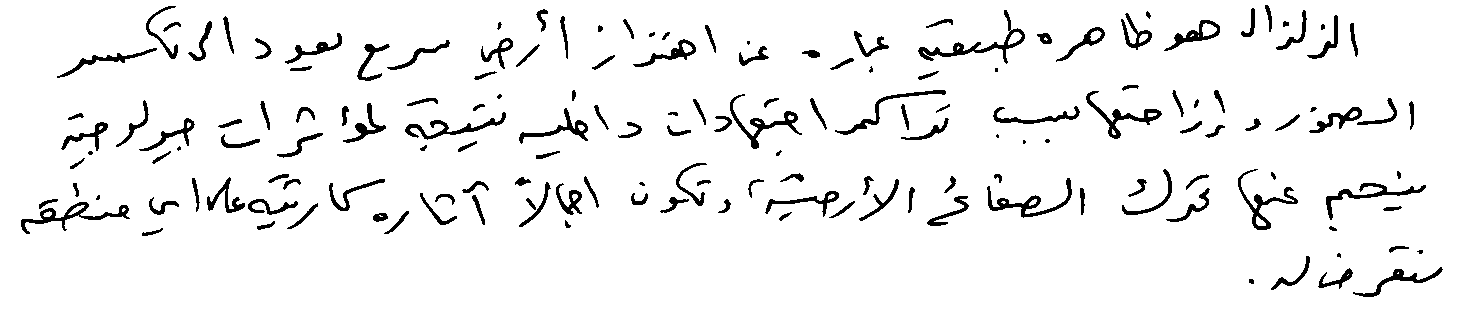 الزلزال هو ظاهره طبيعية عباره عن اهتزاز أرضي سريع يعود الى تكسر
الصخور وإزاحتها بسبب تراكم اجتهادات داخليه نتيجة لمؤثرات جيولوجية
ينجم عنها تحرك الصفائح الأرضية، وتكون اجمالاً آثاره كارثية على اي منطقه
تتعرض له.